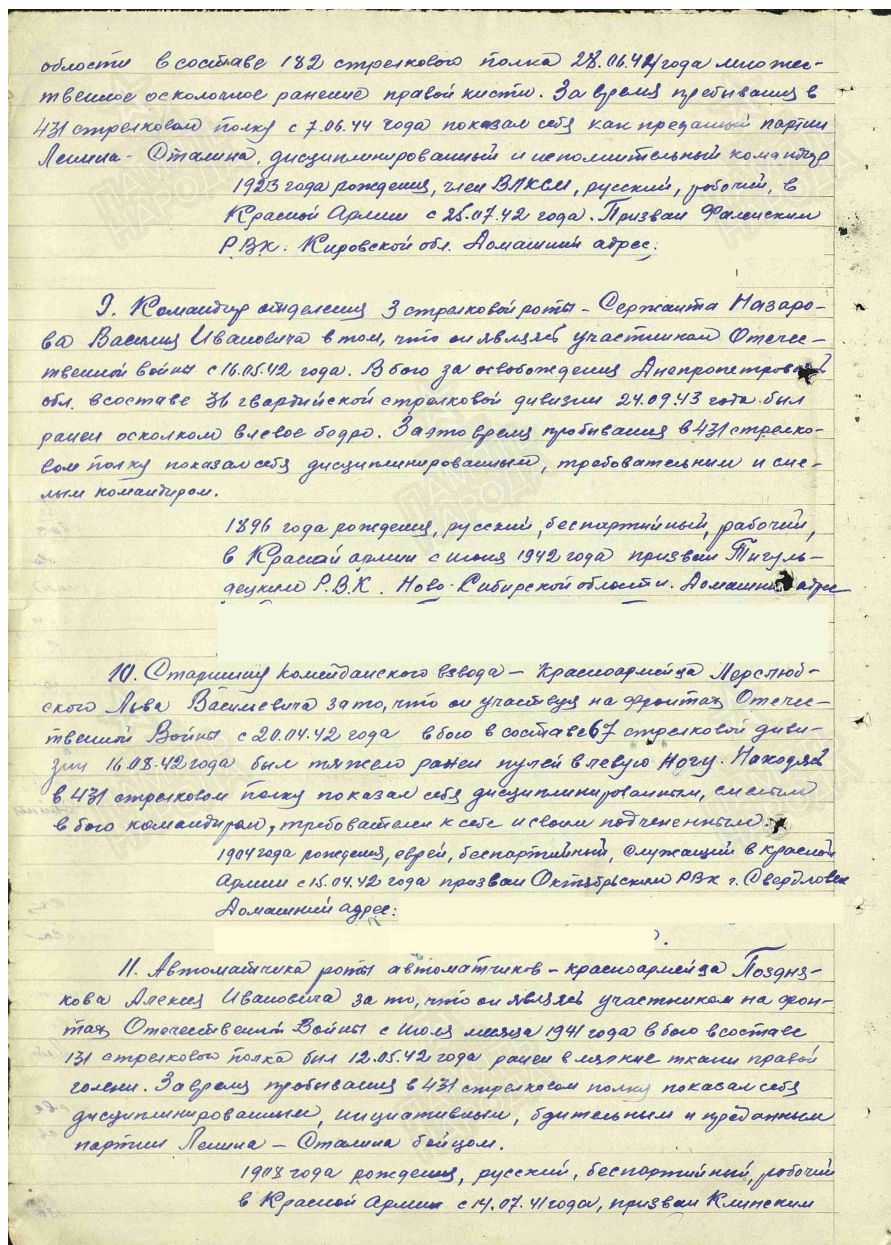 области в составе 182 стрелкового полка 28.06.42 года множес-
твенное осколочное ранение правой кисти. За время пребывания в
431 стрелковом полку с 7.06.44 года показал себя как преданный партии
Ленина - Сталина, дисциплинированный и исполнительный командир
1923 года рождения, член ВЛКСМ, русский, рабочий, в
Красной Армии с 25.07.42 года. Призван Фаленским
Р.В.К. Кировской обл. Домашний адрес:
9. Командир отделения 3 стрелковой роты - Сержанта Назаро-
ва Василия Ивановича в том, что он являясь участником Отечес-
твенной войны с 16.05.42 года. В бою за освобождения Днепропетровской
обл. в составе 36 гвардийской стрелковой дивизии 24.09.43 года был
ранен осколком в левое бедро. За это время пробывания в 431 стрелко-
вом полку показал себя дисциплинированным, требовательным и сме-
лым командиром.
1896 года рождения, русский, беспартийный, рабочий,
в Красной армии с июня 1942 года призван
Р.В.К. Ново-Сибирской области. Домашний адрес
10. Старшину комендански взвода - Красноармейца
ского Льва Василевича за то, что он участвуя на фронтах Отечес-
твенной Войны с 20.04.42 года в бою в составе 67 стрелковой диви-
зии 16.08.42 года был тяжело ранен пулей в левую Ногу. Находясь
в 431 стрелковом полку показал себя дисциплинированным, смелым
в бою командиром, требователен к себе и своим подчененным.
1904 года рождения, еврей, беспартийный, служащий в красной
Армии с 15.04.42 года призван Октябрьским РВК г. Свердловск
Домашний адрес:
11. Автоматчика роты автоматчиков - красноармейца Поздня-
кова Алексея Ивановича за то, что он являясь участником на фрон-
тах Отечественной Войны с июля месяца 1941 года в бою в составе
131 стрелкового полка был 12.05.42 года ранен в мягкие ткани правой
голени. За время пробывания в 431 стрелковом полку показал себя
дисциплинированным, инициативным, бдительным и преданным
партии Ленина - Сталина бойцом.
1908 года рождения, русский, беспартийный, рабочий
в Красной Армии с 14.07.41 года, призван Клинским